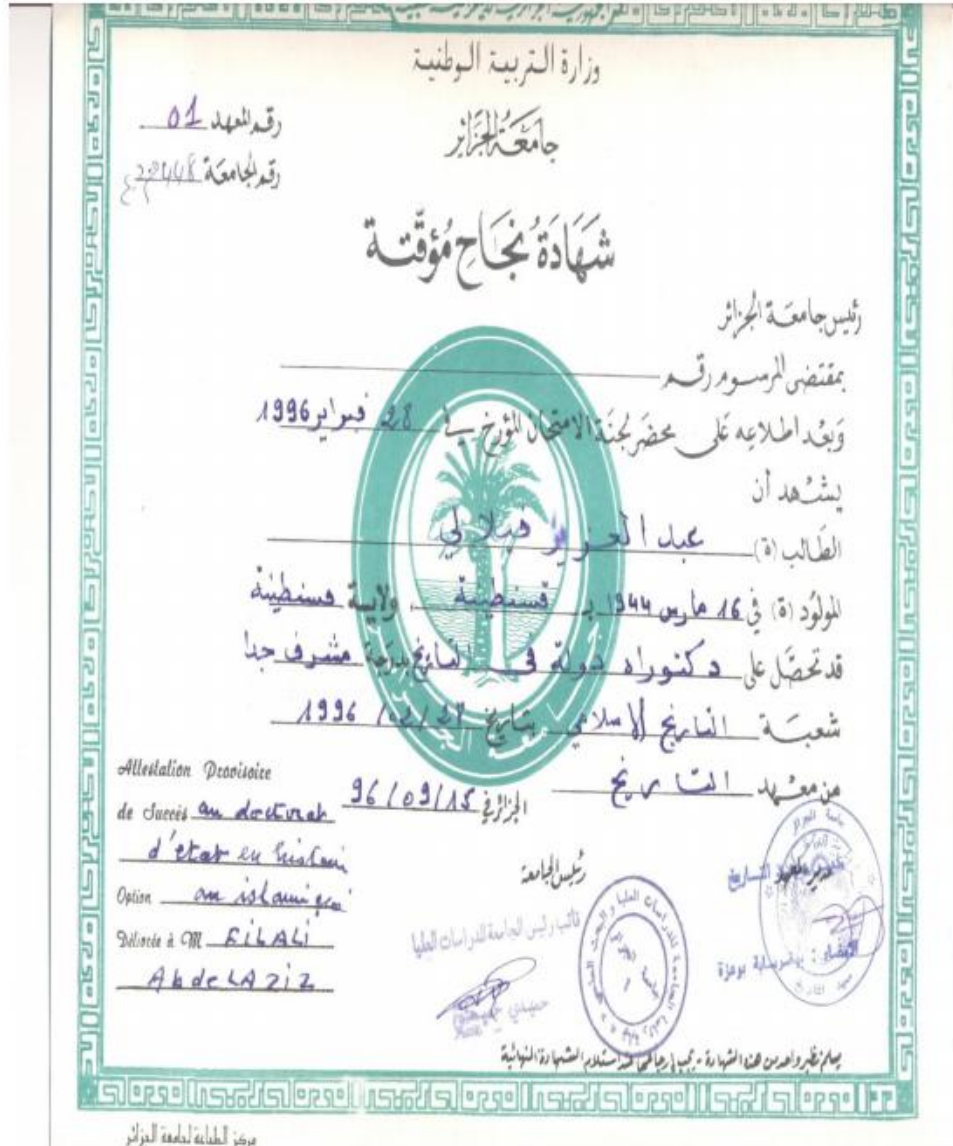 وزارة التربية الوطنية
جامعة الجزائر
رقم المعهد 01
رقم الجامعة
شهادة نجاح مؤقتة
رئيس جامعة الجزائر
بمقتضى المرسوم رقم
وبعد اطلاعه على محضر لجنة الامتحان المؤرخ في 28 فبراير 1996
يشهد أن
الطالب (ة) عبد العزيز فيلالي
المولود (ة) في 16 مارس 1944 بـ قسنطينة ولاية قسنطينة
قد تحصل على دكتوراه دولة في التاريخ بدرجة مشرف جدا
شعبة التاريخ الإسلامي بتاريخ 1996/02/
من معهد التاريخ
الجزائر في 96/09/15
Attestation Provisoire
de Succès au doctorat
d'état en
Option
Délivrée à M FILALI
AbdeLAZiZ
رئيس الجامعة
نائب رئيس الجامعة للدراسات العليا
مدير المعهد
يسلم نظير واحد من هذه الشهادة - يجب إرجاعها عند استلام الشهادة النهائية
مركز الطباعة لجامعة الجزائر